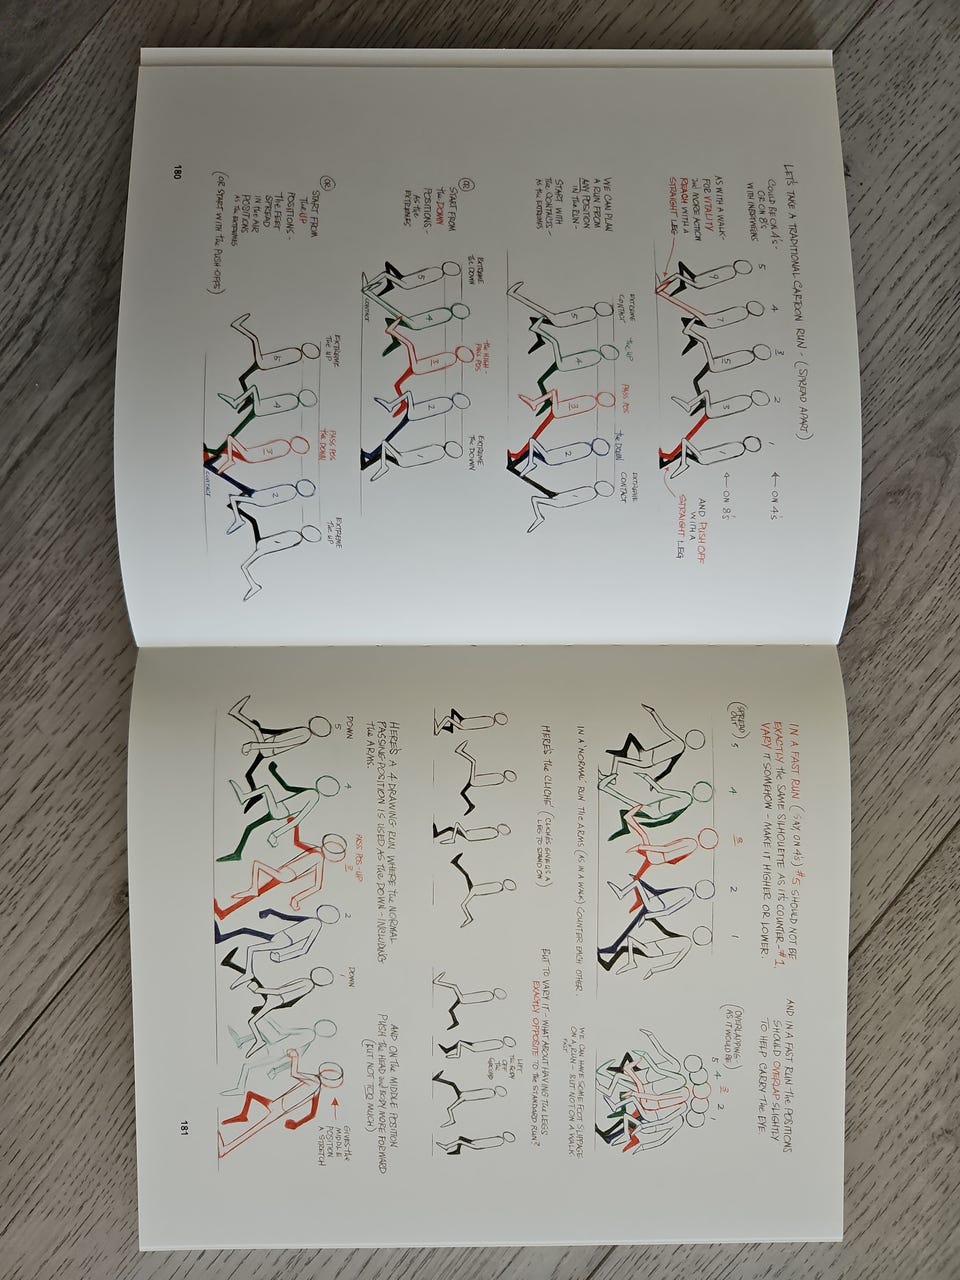 LET'S TAKE A TRADITIONAL CARTOON RUN - (SPREAD APART)
COULD BE ON 4's -
OR ON 8's
WITH INBETWEENS
5 4 3 2 1 ← ON 4's
9 7 5 3 1 ← ON 8's
AS WITH A WALK -
FOR VITALITY
and MORE ACTION
REACH WITH A
STRAIGHT LEG
AND PUSH OFF
WITH A
STRAIGHT LEG
WE CAN PLAN
A RUN FROM
ANY POSITION
IN THE RUN -
START WITH
the CONTACTS -
as the EXTREMES
EXTREME
CONTACT
the UP
PASS POS
the DOWN
EXTREME
CONTACT
5 4 3 2 1
OR
START FROM
the DOWN
POSITIONS -
as the
EXTREMES
EXTREME
the DOWN
the HIGH -
PASS POS
EXTREME
the DOWN
5 4 3 2 1
CONTACT
OR
START FROM
the UP
POSITIONS -
the FEET
SPREAD
IN the AIR
POSITIONS
as the EXTREMES
(OR START with the PUSH-OFFS)
EXTREME
the UP
PASS POS
the DOWN
EXTREME
the UP
5 4 3 2 1
CONTACT
180
IN A FAST RUN (SAY, ON 4's) #5 SHOULD NOT BE
EXACTLY the SAME SILHOUETTE AS ITS COUNTER - #1.
VARY IT SOMEHOW - MAKE IT HIGHER OR LOWER.
(SPREAD
OUT)
5 4 3 2 1
AND IN A FAST RUN the POSITIONS
SHOULD OVERLAP SLIGHTLY
TO HELP CARRY the EYE.
(OVERLAPPING -
AS IT WOULD BE)
5 4 3 2 1
IN A 'NORMAL' RUN the ARMS (AS IN A WALK) COUNTER EACH OTHER.
WE CAN HAVE SOME FOOT SLIPPAGE
ON A FAST RUN - BUT NOT ON A WALK.
HERE'S the CLICHÉ (CLICHÉS GIVE US A
LEG TO STAND ON)
BUT TO VARY IT - WHAT ABOUT HAVING the LEGS
EXACTLY OPPOSITE TO the STANDARD RUN?
LIFT
the BODY
OFF
the
GROUND
HERE'S A 4 DRAWING RUN, WHERE the NORMAL
PASSING POSITION IS USED AS the DOWN - INCLUDING
the ARMS.
DOWN
5
4
PASS POS - UP
3
2
DOWN
1
AND ON the MIDDLE POSITION
PUSH the HEAD and BODY MORE FORWARD
(BUT NOT TOO MUCH)
GIVES the
MIDDLE
POSITION
A STRETCH
181